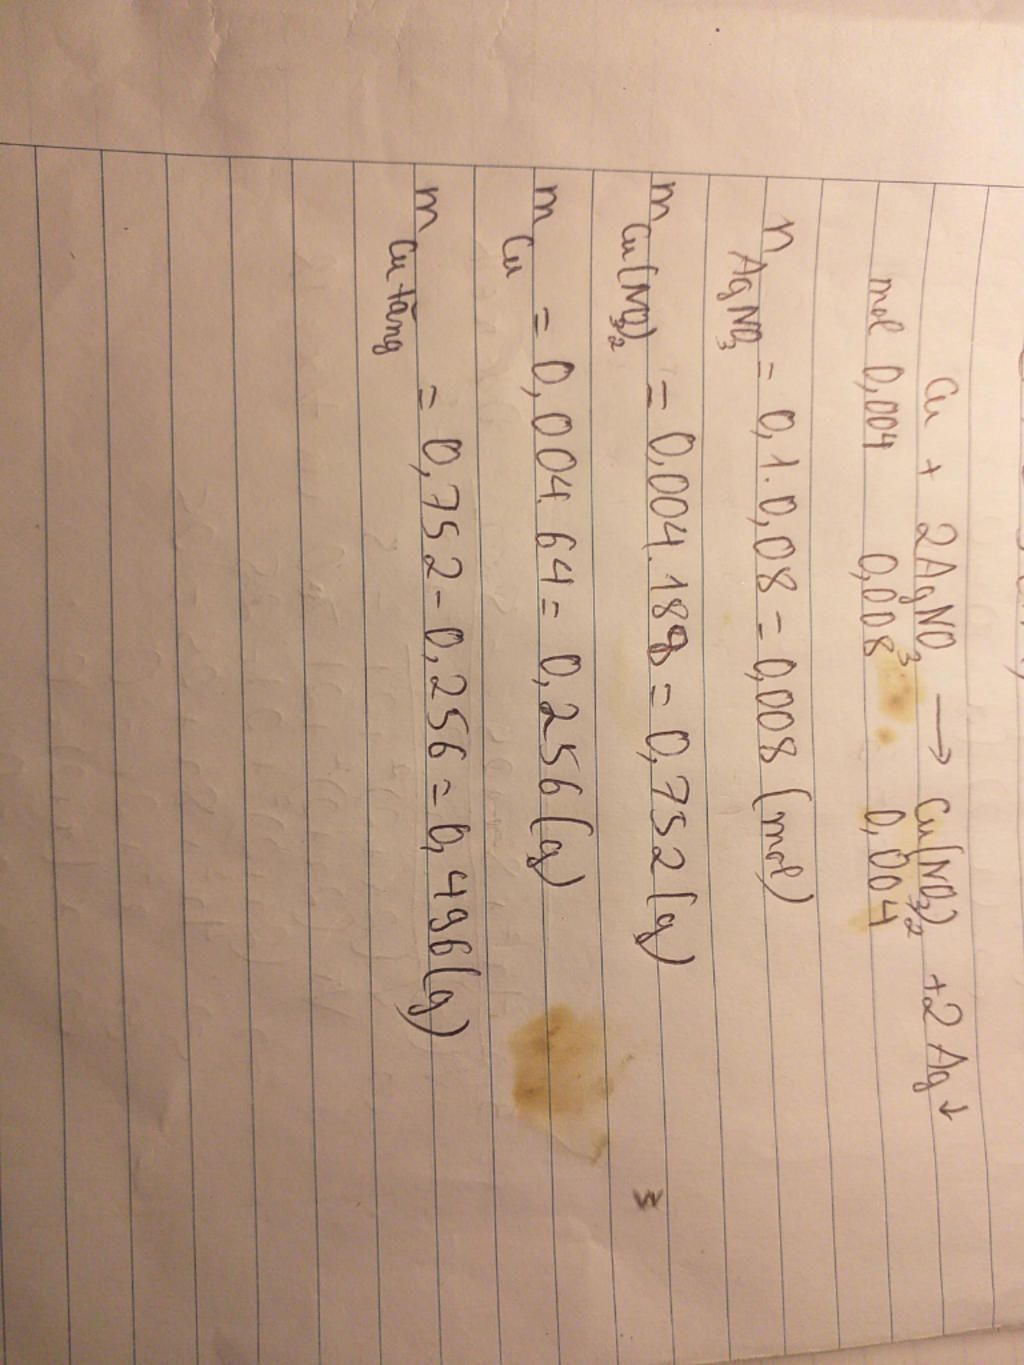 Cu + 2AgNO₃ → Cu(NO₃)₂ + 2Ag↓
mol 0,004 0,008 0,004
n AgNO₃ = 0,1.0,08 = 0,008 (mol)
m Cu(NO₃)₂ = 0,004.188 = 0,752 (g)
m Cu = 0,004.64 = 0,256 (g)
m Cu tăng = 0,752 - 0,256 = 0,496 (g)